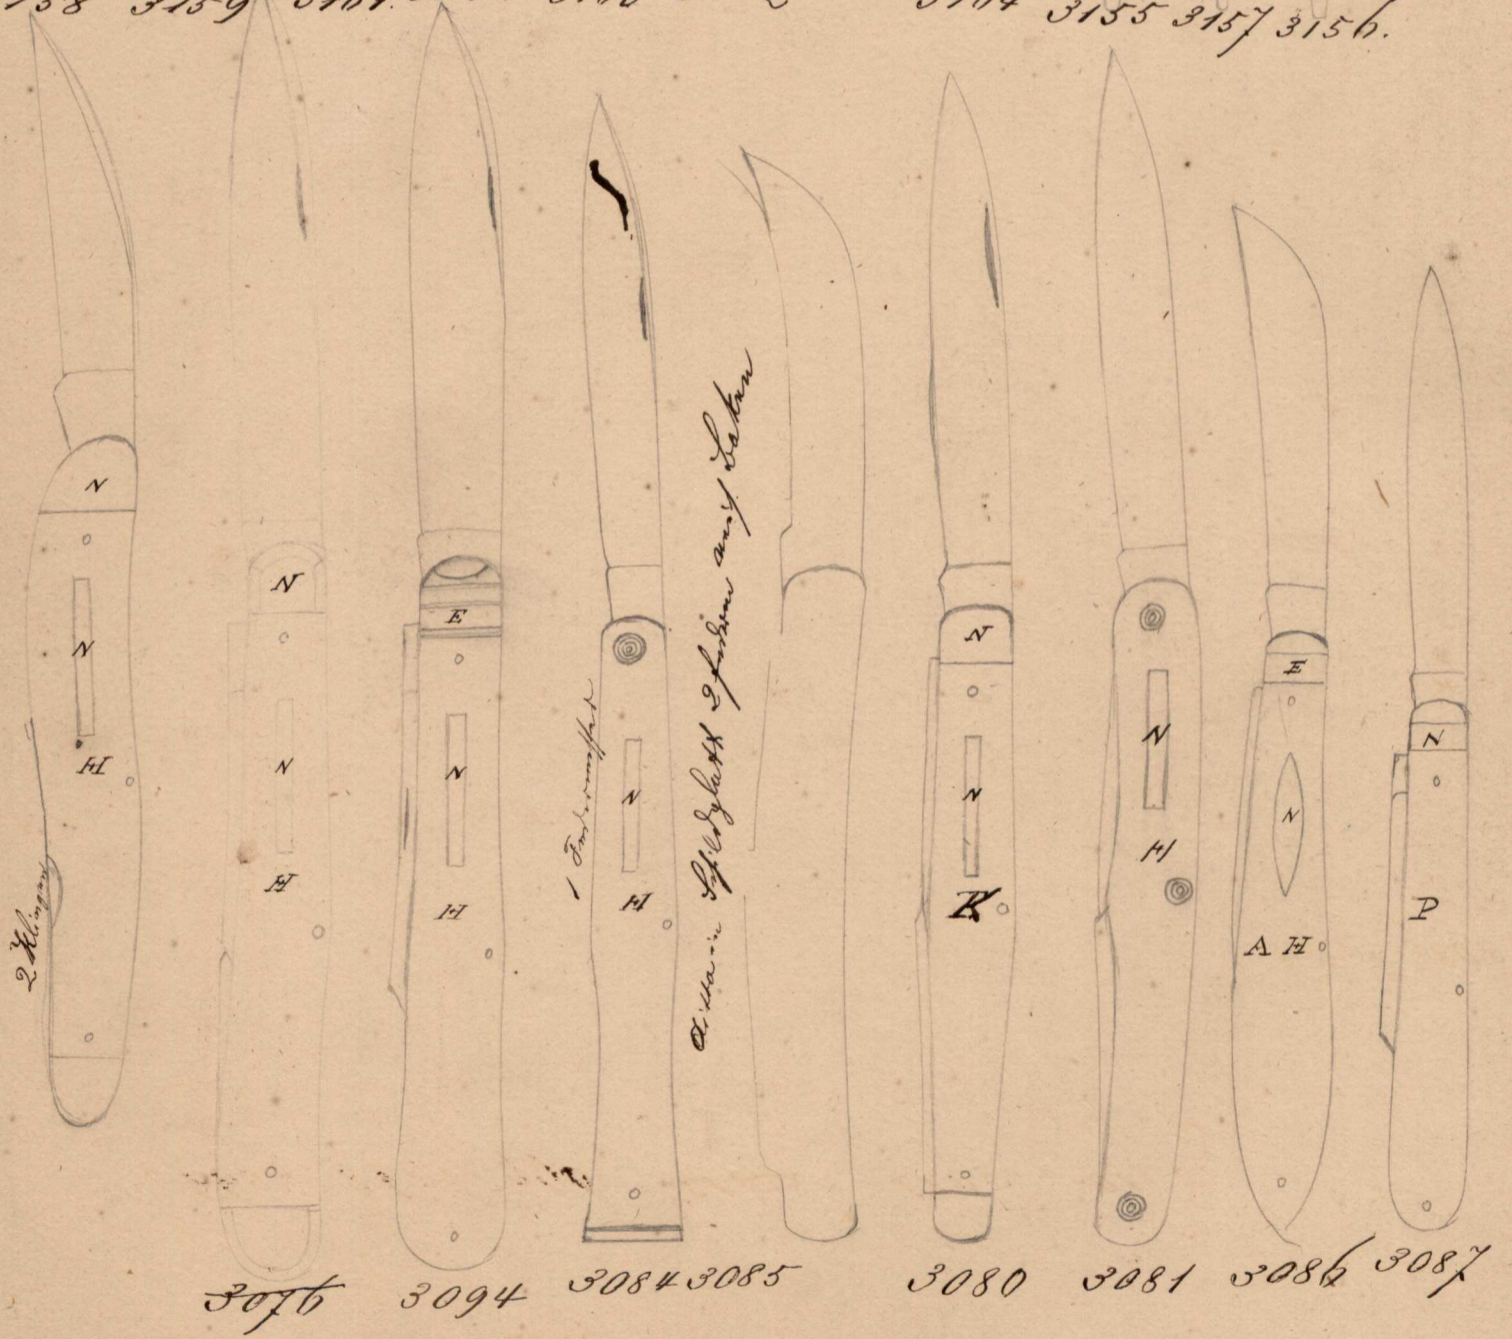 3159
3155 3157 3156.
N
N
H
2 Klingen
N
N
H
E
N
H
1 Federmesser
N
H
ditto in Schildplatt 2 federn auf Baken
N
N
K
N
H
E
N
A H
N
P
3076 3094 3084 3085 3080 3081 3086 3087